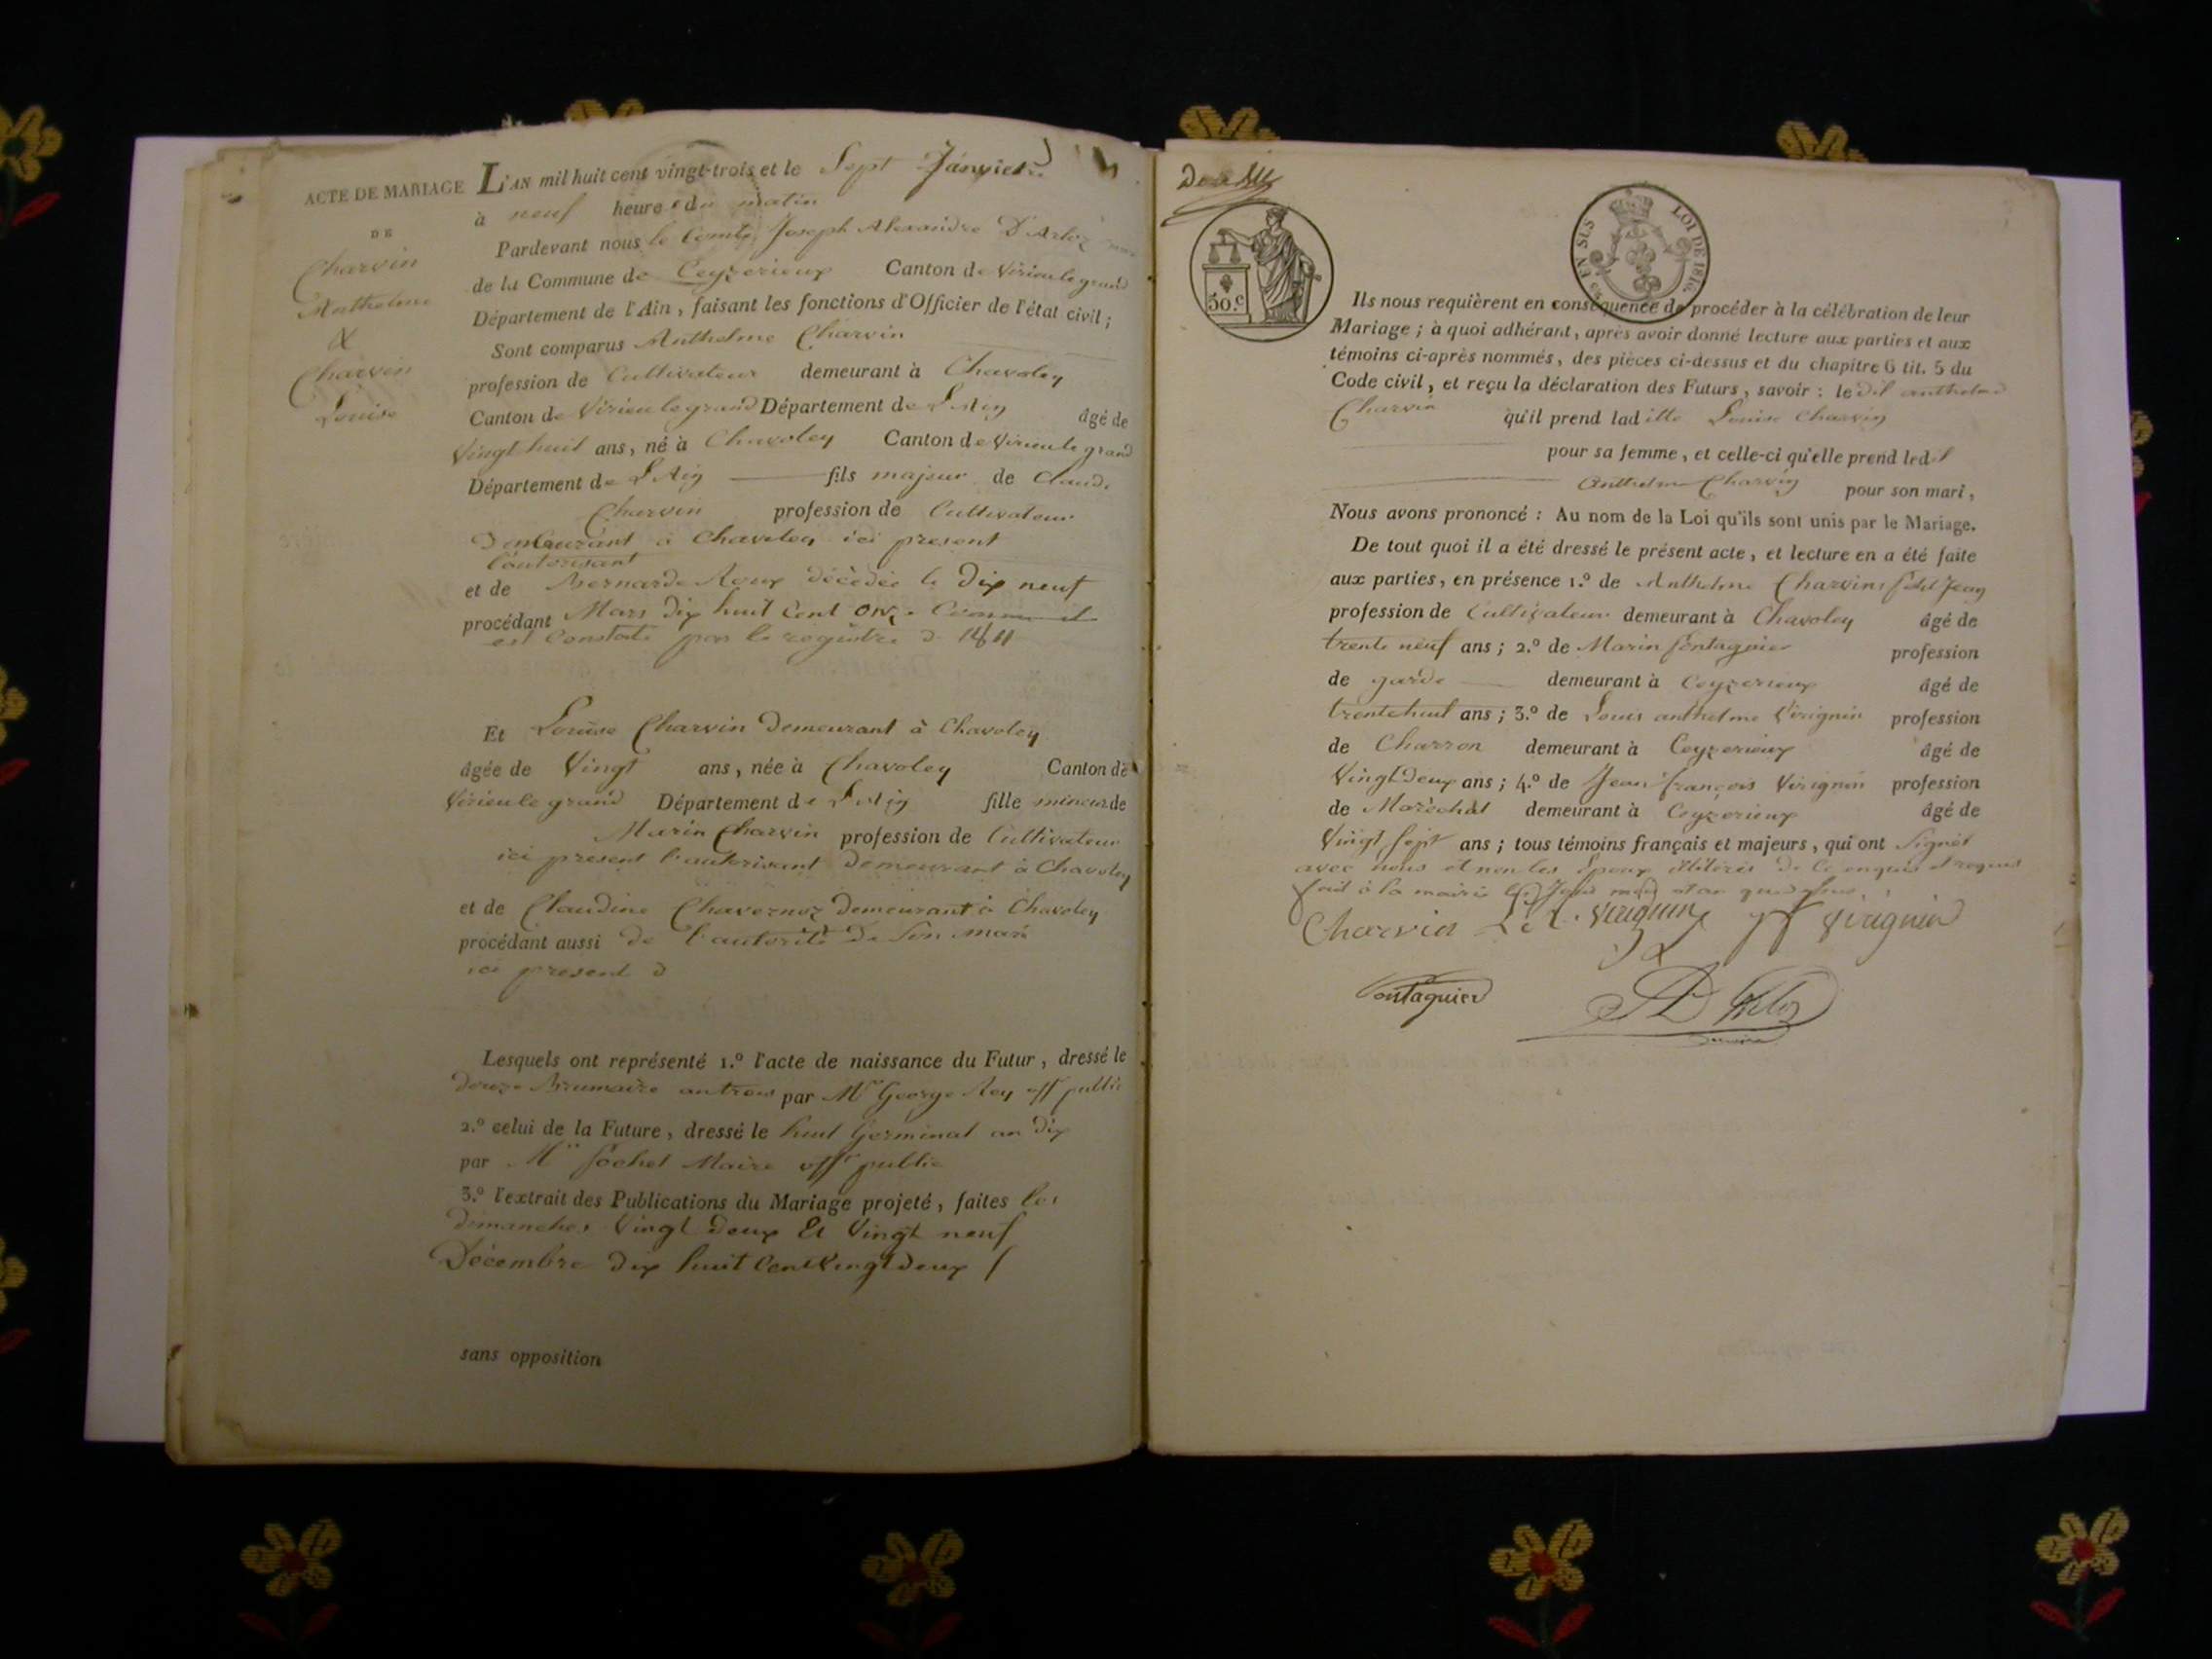 ACTE DE MARIAGE
DE
Charvin
Anthelme
&
Charvin
Louise
L'AN mil huit cent vingt-trois et le Sept Janvier
à neuf heures du matin
Pardevant nous le Comte Joseph Alexandre D'Arloz
de la Commune de Ceyzerieux Canton de Virieu le grand
Département de l'Ain, faisant les fonctions d'Officier de l'état civil;
Sont comparus Anthelme Charvin
profession de Cultivateur demeurant à Chavoley
Canton de Virieu le grand Département de L'Ain âgé de
Vingt huit ans, né à Chavoley Canton de Virieu le grand
Département de L'Ain fils majeur de Claude
Charvin profession de Cultivateur
Demeurant à Chavoley ici present
l'autorisant
et de Bernarde Roux décèdée le dix neuf
procédant Mars dix huit Cent onze Comme il
est Constaté par le registre d 1811
Et Louise Charvin demeurant à Chavoley
âgée de Vingt ans, née à Chavoley Canton de
Virieu le grand Département de L'Ain fille mineur de
Marin Charvin profession de Cultivateur
ici present l'autorisant demeurant à Chavoley
et de Claudine Chavernoz demeurant à Chavoley
procédant aussi de l'autorité de Son mari
ici present
Lesquels ont représenté 1.º l'acte de naissance du Futur, dressé le
douze Brumaire an trois par Mr George Rey off public
2.º celui de la Future, dressé le huit Germinal an dix
par Mr Fochet Maire offr public
3.º l'extrait des Publications du Mariage projeté, faites les
dimanches Vingt deux Et Vingt neuf
Décembre dix huit Cent Vingt deux
sans opposition
50.c
EN SUS
LOI DE 1816.
Ils nous requièrent en conséquence de procéder à la célébration de leur
Mariage; à quoi adhérant, après avoir donné lecture aux parties et aux
témoins ci-après nommés, des pièces ci-dessus et du chapitre 6 tit. 5 du
Code civil, et reçu la déclaration des Futurs, savoir: le dit anthelme
Charvin qu'il prend laditte Louise Charvin
pour sa femme, et celle-ci qu'elle prend ledit
Anthelme Charvin pour son mari,
Nous avons prononcé: Au nom de la Loi qu'ils sont unis par le Mariage.
De tout quoi il a été dressé le présent acte, et lecture en a été faite
aux parties, en présence 1.º de Anthelme Charvin Jean
profession de Cultivateur demeurant à Chavoley âgé de
trente neuf ans; 2.º de Marin fontagnier profession
de garde demeurant à Ceyzerieux âgé de
trente huit ans; 3.º de Louis anthelme Virignin profession
de Charron demeurant à Ceyzerieux âgé de
Vingt Deux ans; 4.º de Jean françois Virignin profession
de Maréchal demeurant à Ceyzerieux âgé de
Vingt Sept ans; tous témoins français et majeurs, qui ont Signés
avec nous et non les Epoux illiterés de ce enquis et requis
fait à la mairie
Charvin L. A. Virignin jf Virignin
fontagnier